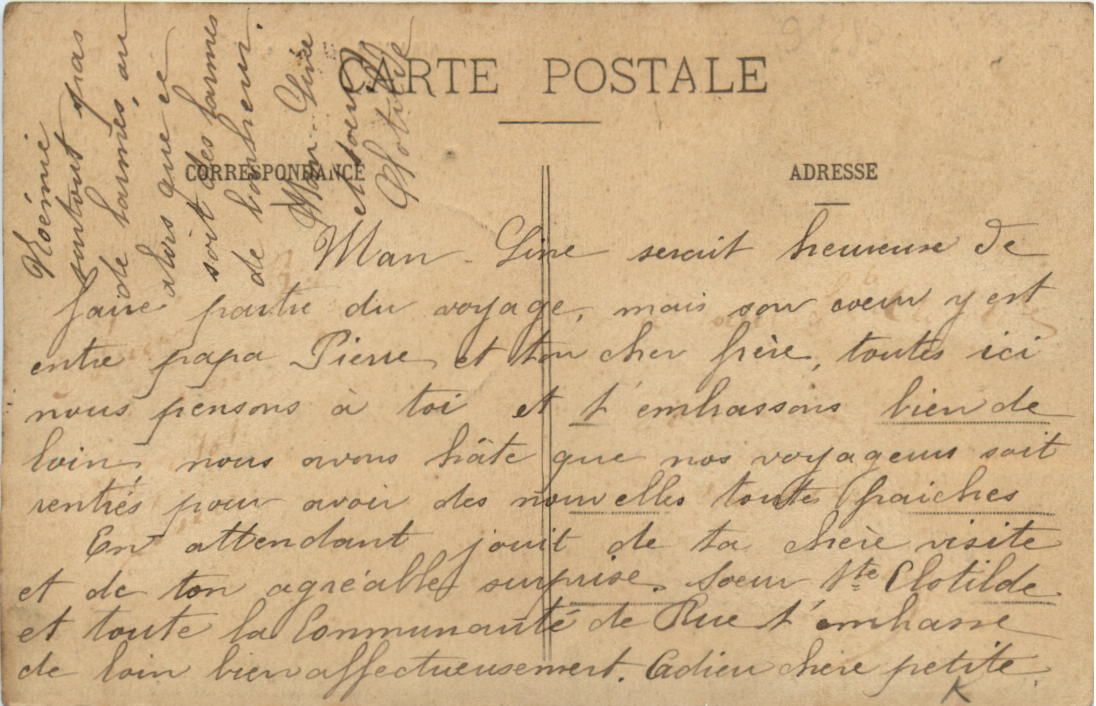 CARTE POSTALE
CORRESPONDANCE
ADRESSE
Man Line serait heureuse de
faire partie du voyage, mais son coeur y est
entre papa Pierre et ton cher frère, toutes ici
nous pensons à toi et t'embrassons bien de
loin, nous avons hâte que nos voyageurs soit
rentrés pour avoir des nouvelles toutes fraiches
En attendant jouit de ta chère visite
et de ton agréable surprise. Soeur Ste Clotilde
et toute la Communauté de Rue t'embrasse
de loin bien affectueusement. Adieu chère petite
Noémie
surtout pas
de larmes, ou
alors que ce
soit des larmes
de bonheur.
Man Line
et soeur
Clotilde